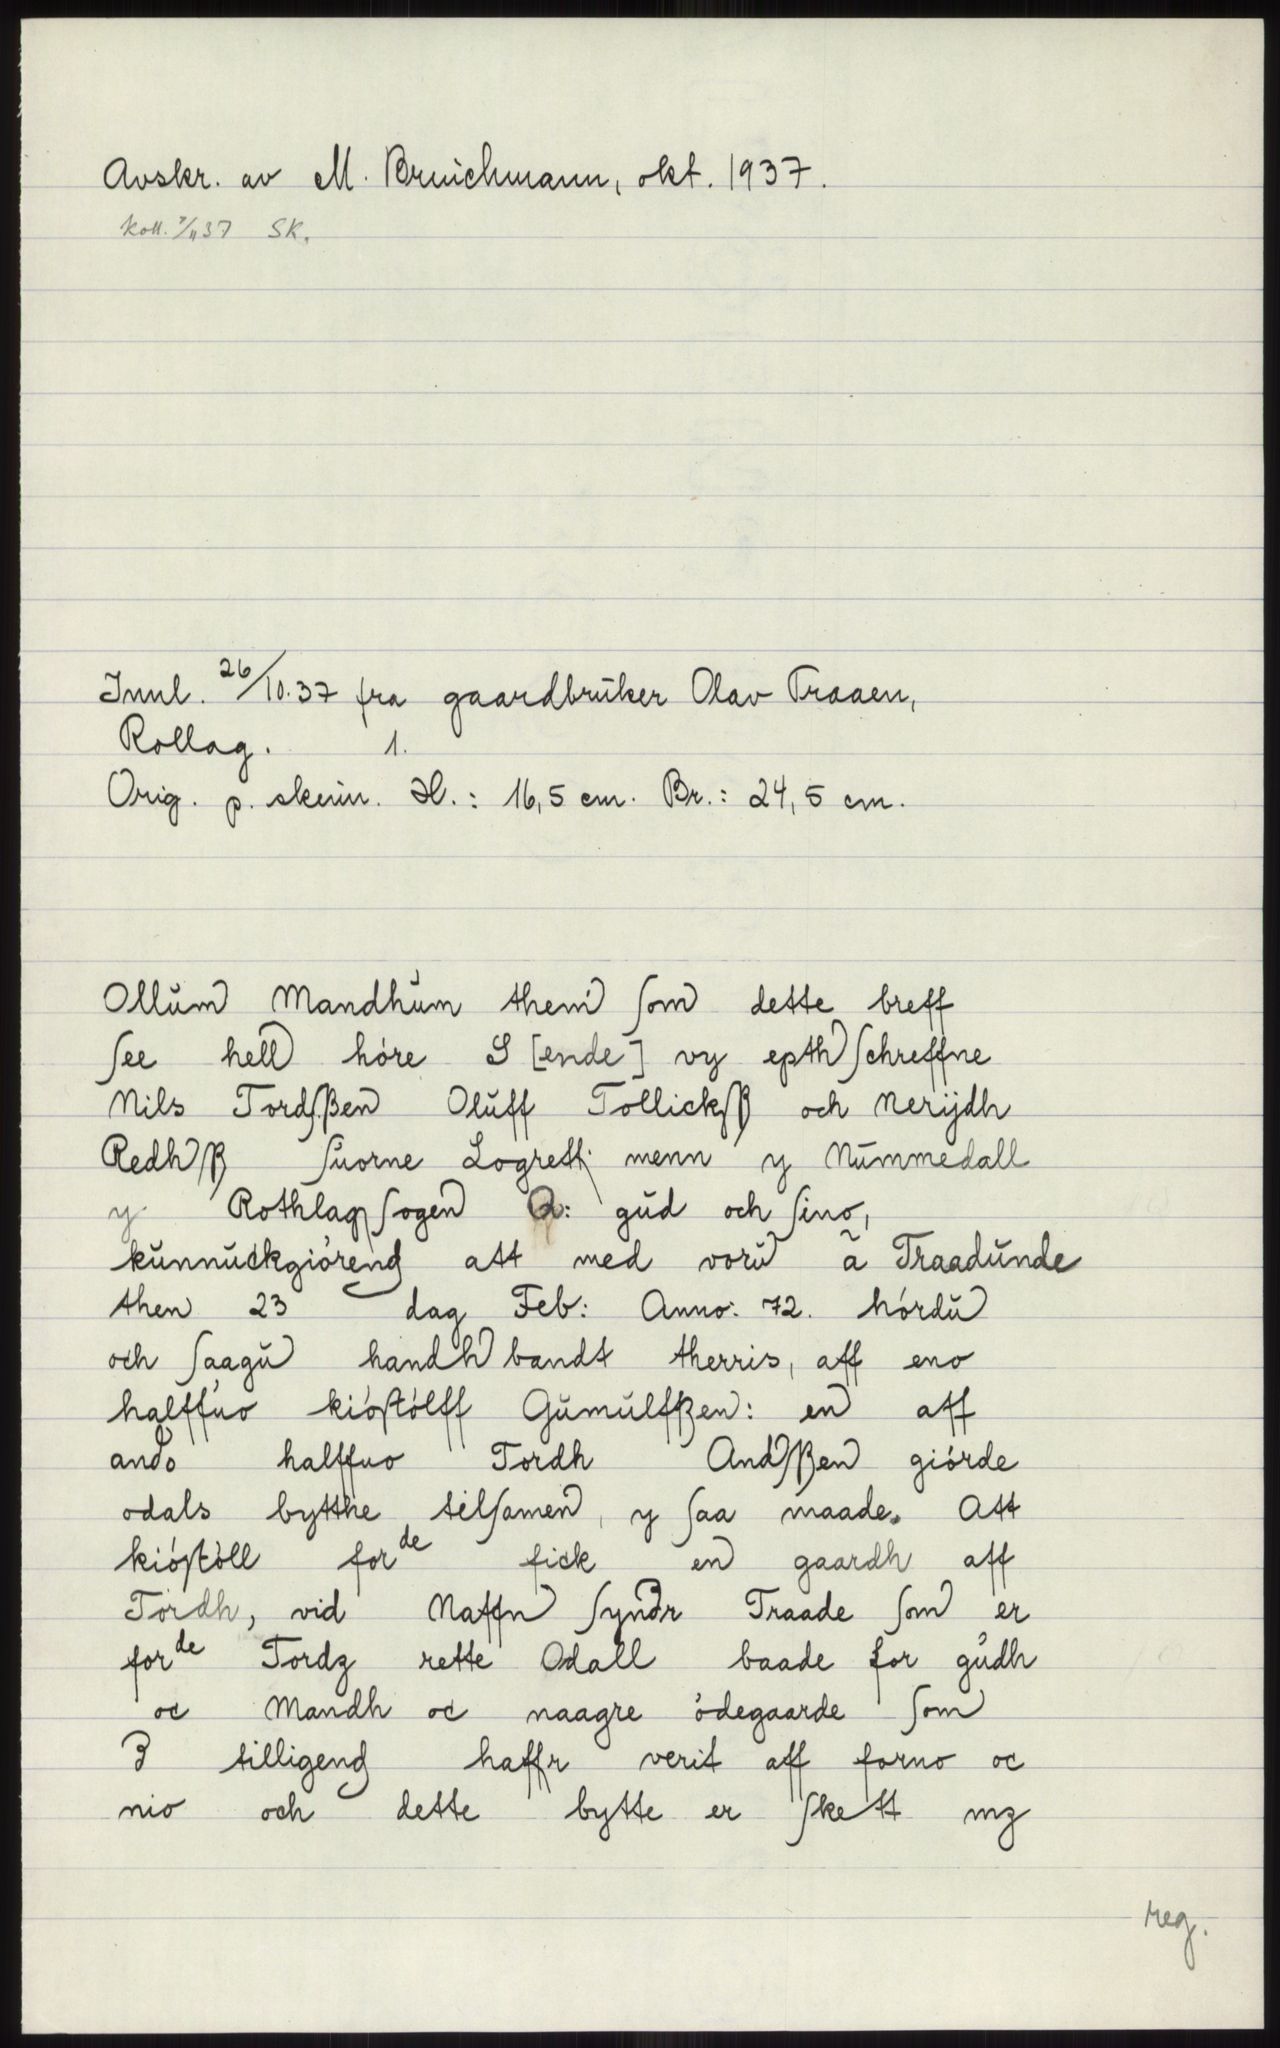 Avskr. av M. Bruichmann, okt. 1937.
Koll. 3/11 37 SK.
Innl. 26/10.37 fra gaardbruker Olav Traaen,
Rollag. 1.
Orig. p. skinn. H.: 16,5 cm. Br.: 24,5 cm.
Ollum Mandhum them som dette breff
see hell hóre S [ende] vy epth schreffne
Nils Tordsßen Oluff Tollickß och Nerijdh
Redhß suorne Logrett menn y Nummedall
y Rothlag sogen Q: gud och sino,
kunnuckgiórend att med vorű ã Traadunde
then 23 dag Feb: Anno: 72. hórdu
och saagu handh bandt therris, aff eno
halffuo kióstólff Gumulfßen: en aff
ando halffuo Tordh Andßen giórde
odals bytthe tilsamen, y saa maade. Att
kióstóll forde fick en gaardh aff
Tordh, vid Naffn syndr Traade som er
forde Tordz rette Odall baade for gudh
oc Mandh oc naagre ódegaarde som
3 tilligend haffr verit aff forno oc
nio och dette bytte er skett mz
reg.